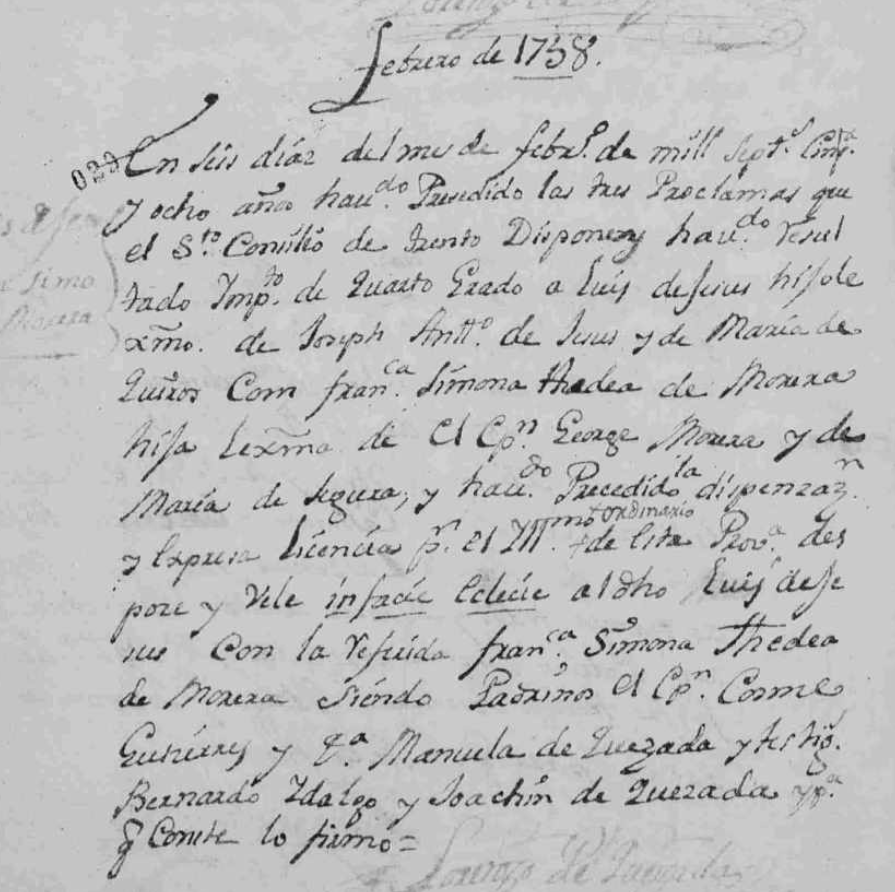 febrero de 1758.
023
En seis diaz del mes de febro. de mill septs. Cinqta.
y ocho años haudo. Presedido las tres Proclamas que
el Sto. Consilio de trento Disponen, y haudo. resul
tado Impto. de Quarto Grado a Luis de Jesus hijo le
xmo. de Joseph Antto. de Jesus y de Maria de
Quiros Com franca. Simona thadea de Morera
hija lexma de el Cpn. George Morera y de
Maria de segura, y haudo. Precedido la dispenzazn.
y Expresa licencia pr. el Yllmo. + ordinario de esta Prova. des
pose y vele in facie Eclecie al dho Luis de Je
sus Con la referida franca. Simona Thedea
de Morera siendo Padrinos el Cpn. Cosme
Gutierres y Da. Manuela de Quezada y testigs.
Bernardo Ydalgo y Joachin de Quezada y pa.
q Conste lo firmo =
simo
Morera